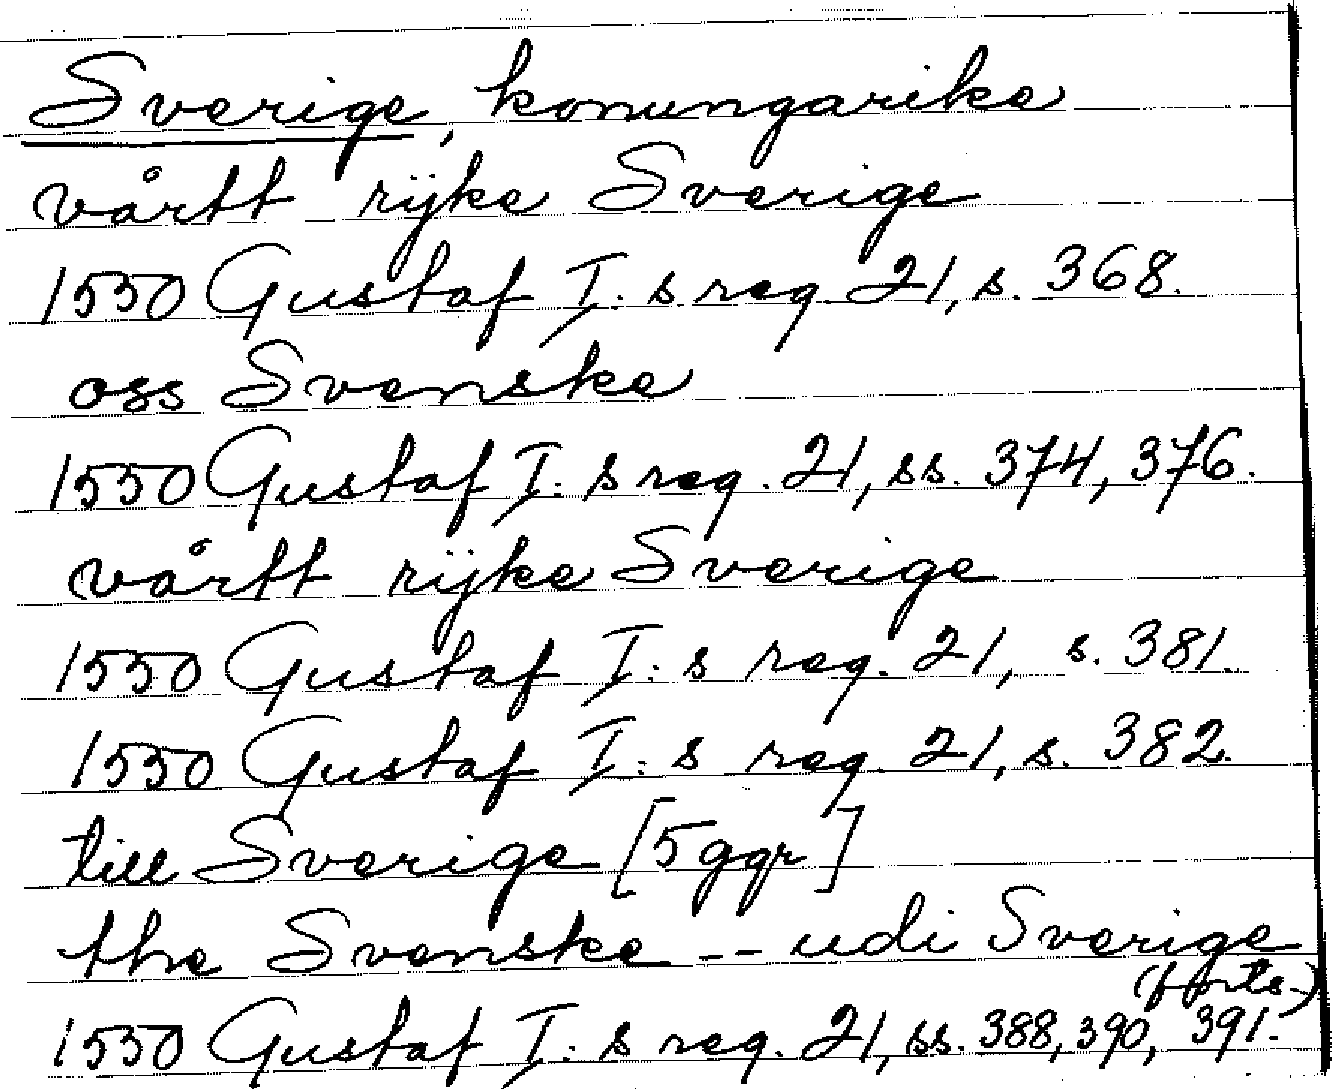 Sverige, konungarike
vårtt rijke Sverige
1550 Gustaf I: s reg. 21, s. 368.
oss Svenske
1550 Gustaf I: s reg. 21, ss. 374, 376.
vårtt rijke Sverige
1550 Gustaf I: s reg. 21, s. 381.
1550 Gustaf I: s reg. 21, s. 382.
till Sverige [5 ggr]
the Svenske -- udi Sverige
(forts.)
1550 Gustaf I: s reg. 21, ss. 388, 390, 391.